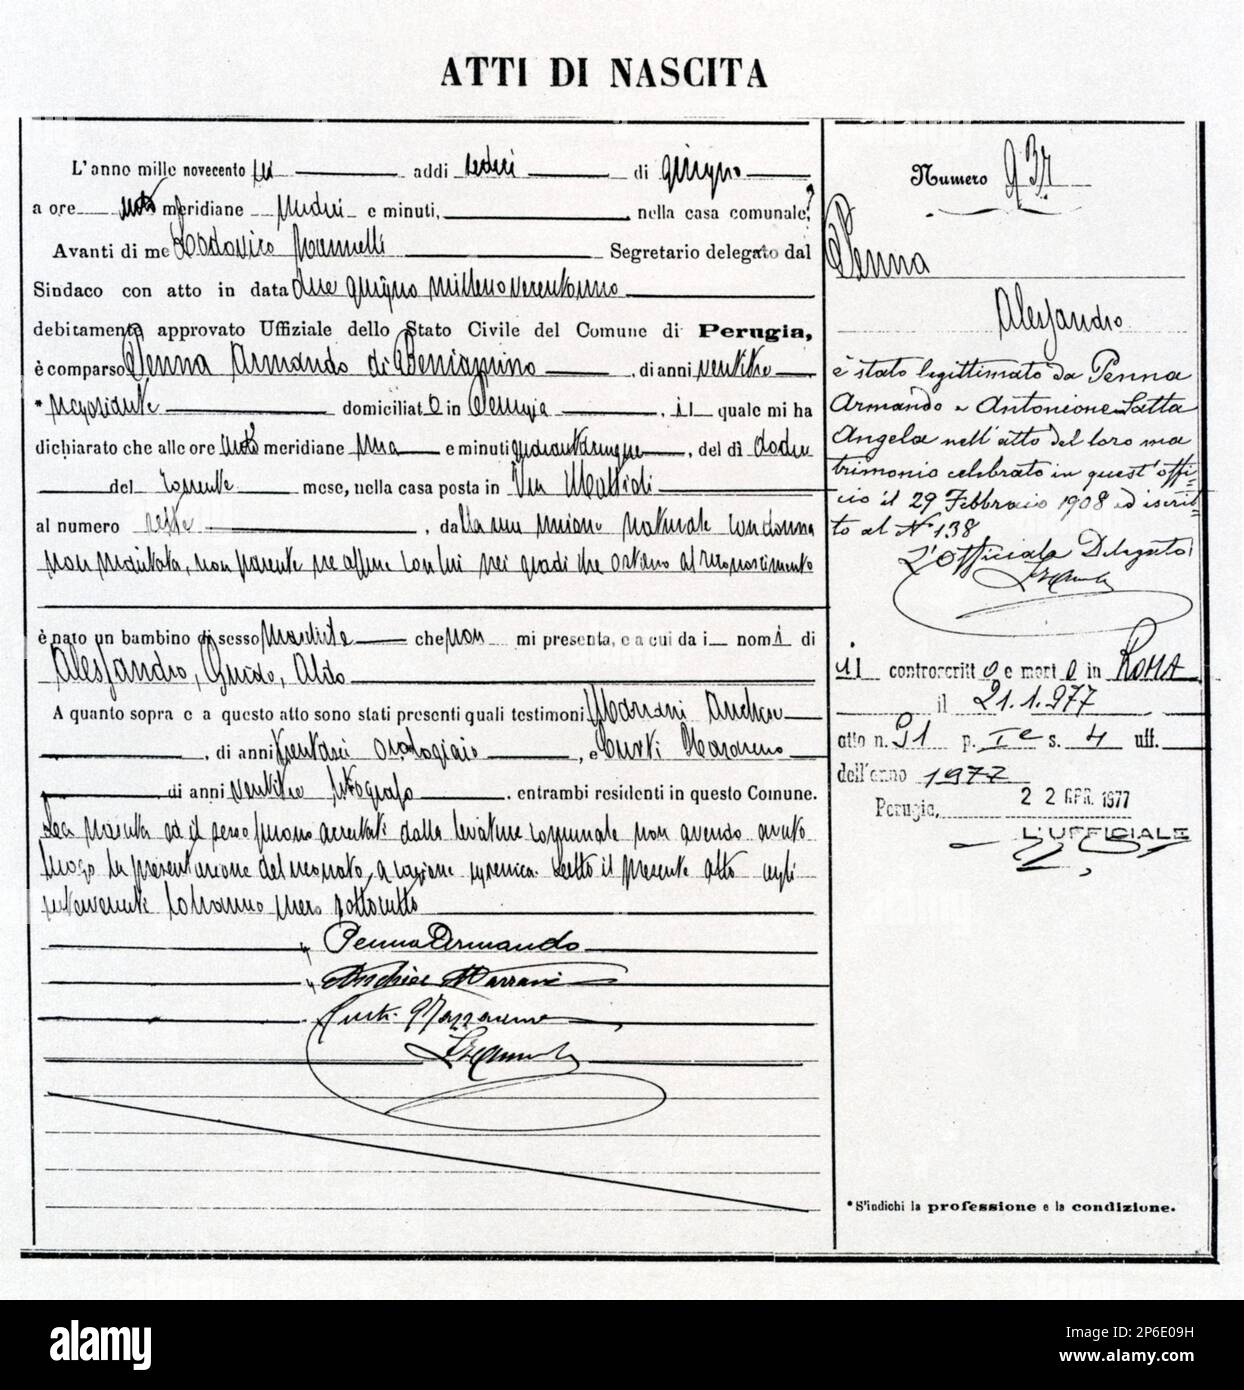 ATTI DI NASCITA
L'anno mille novecento sei addì sedici di giugno
a ore meridiane undici e minuti, nella casa comunale?
Avanti di me Lodovico Segretario delegato dal
Sindaco con atto in data due giugno millenovecentouno
debitamente approvato Uffiziale dello Stato Civile del Comune di Perugia,
è comparso Penna Armando di Beniamino, di anni ventitre
* negoziante domiciliato in Perugia, il quale mi ha
dichiarato che alle ore meridiane una e minuti quarantacinque, del dì dodici
del corrente mese, nella casa posta in Via Mattioli
al numero sette, dalla sua unione naturale con donna
non maritata, non parente nè affine con lui nei gradi che ostano al riconoscimento
è nato un bambino di sesso maschile che non mi presenta, e a cui da i nomi di
Alessandro, Guido, Aldo
A quanto sopra e a questo atto sono stati presenti quali testimoni Marrani
, di anni trentasei orologiaio, e Curti Nazareno
di anni ventitre fotografo, entrambi residenti in questo Comune.
La nascita ed il sesso furono accertati dalla levatrice comunale non avendo avuto
luogo la presentazione del neonato, a ragione igienica. Letto il presente atto agli
intervenuti lo hanno meco sottoscritto
Penna Armando
Marrani
Curti Nazzareno
Numero 937
Penna
Alessandro
è stato legittimato da Penna
Armando e Antonione Satta
Angela nell'atto del loro ma
trimonio celebrato in quest'offi-
cio il 29 Febbraio 1908 ed iscrit-
to al N° 138
L'Officiale Delegato
il controscritto è morto in ROMA
il 21.1.977
atto n. 91 p. I e s. 4 uff.
dell'anno 1977
Perugia, 22 APR. 1977
L'UFFICIALE
*S'indichi la professione e la condizione.
alamy
Image ID: 2P6E09H
www.alamy.com